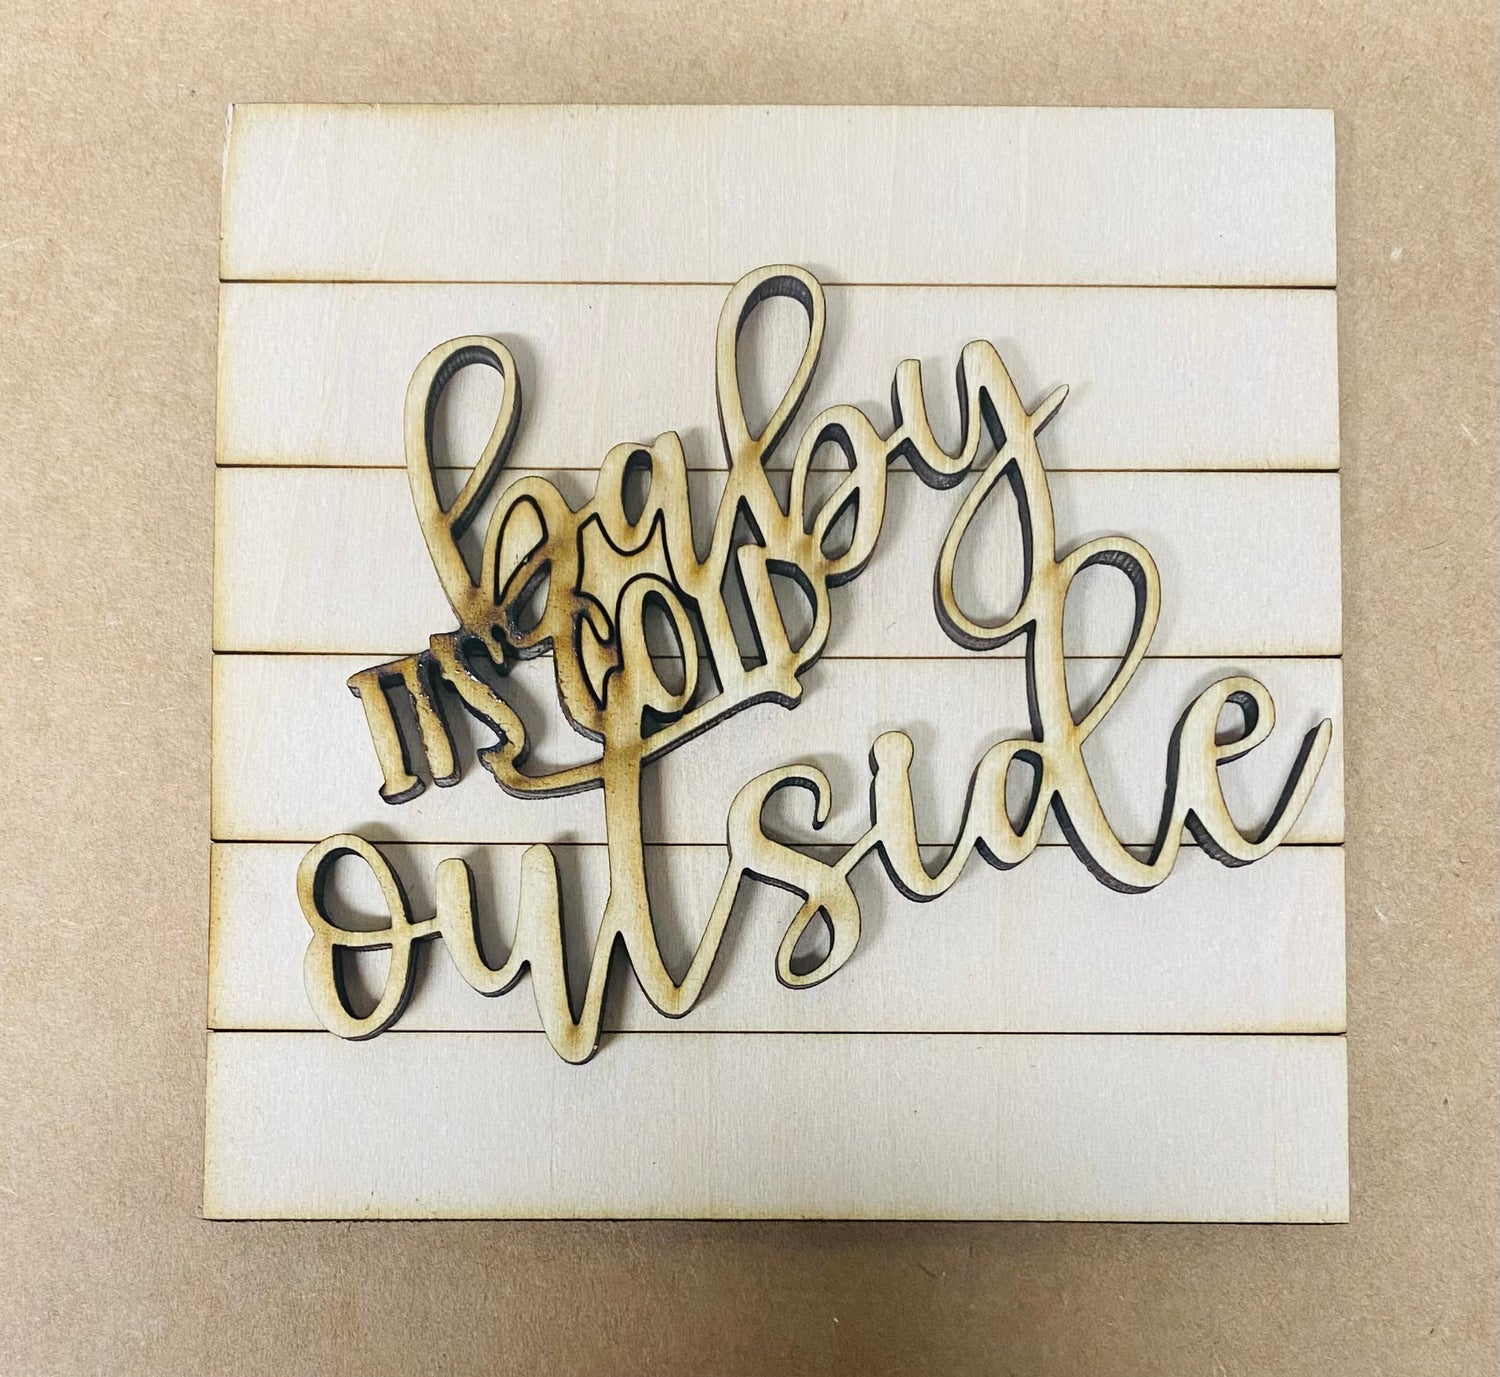 baby
IT'S COLD
outside